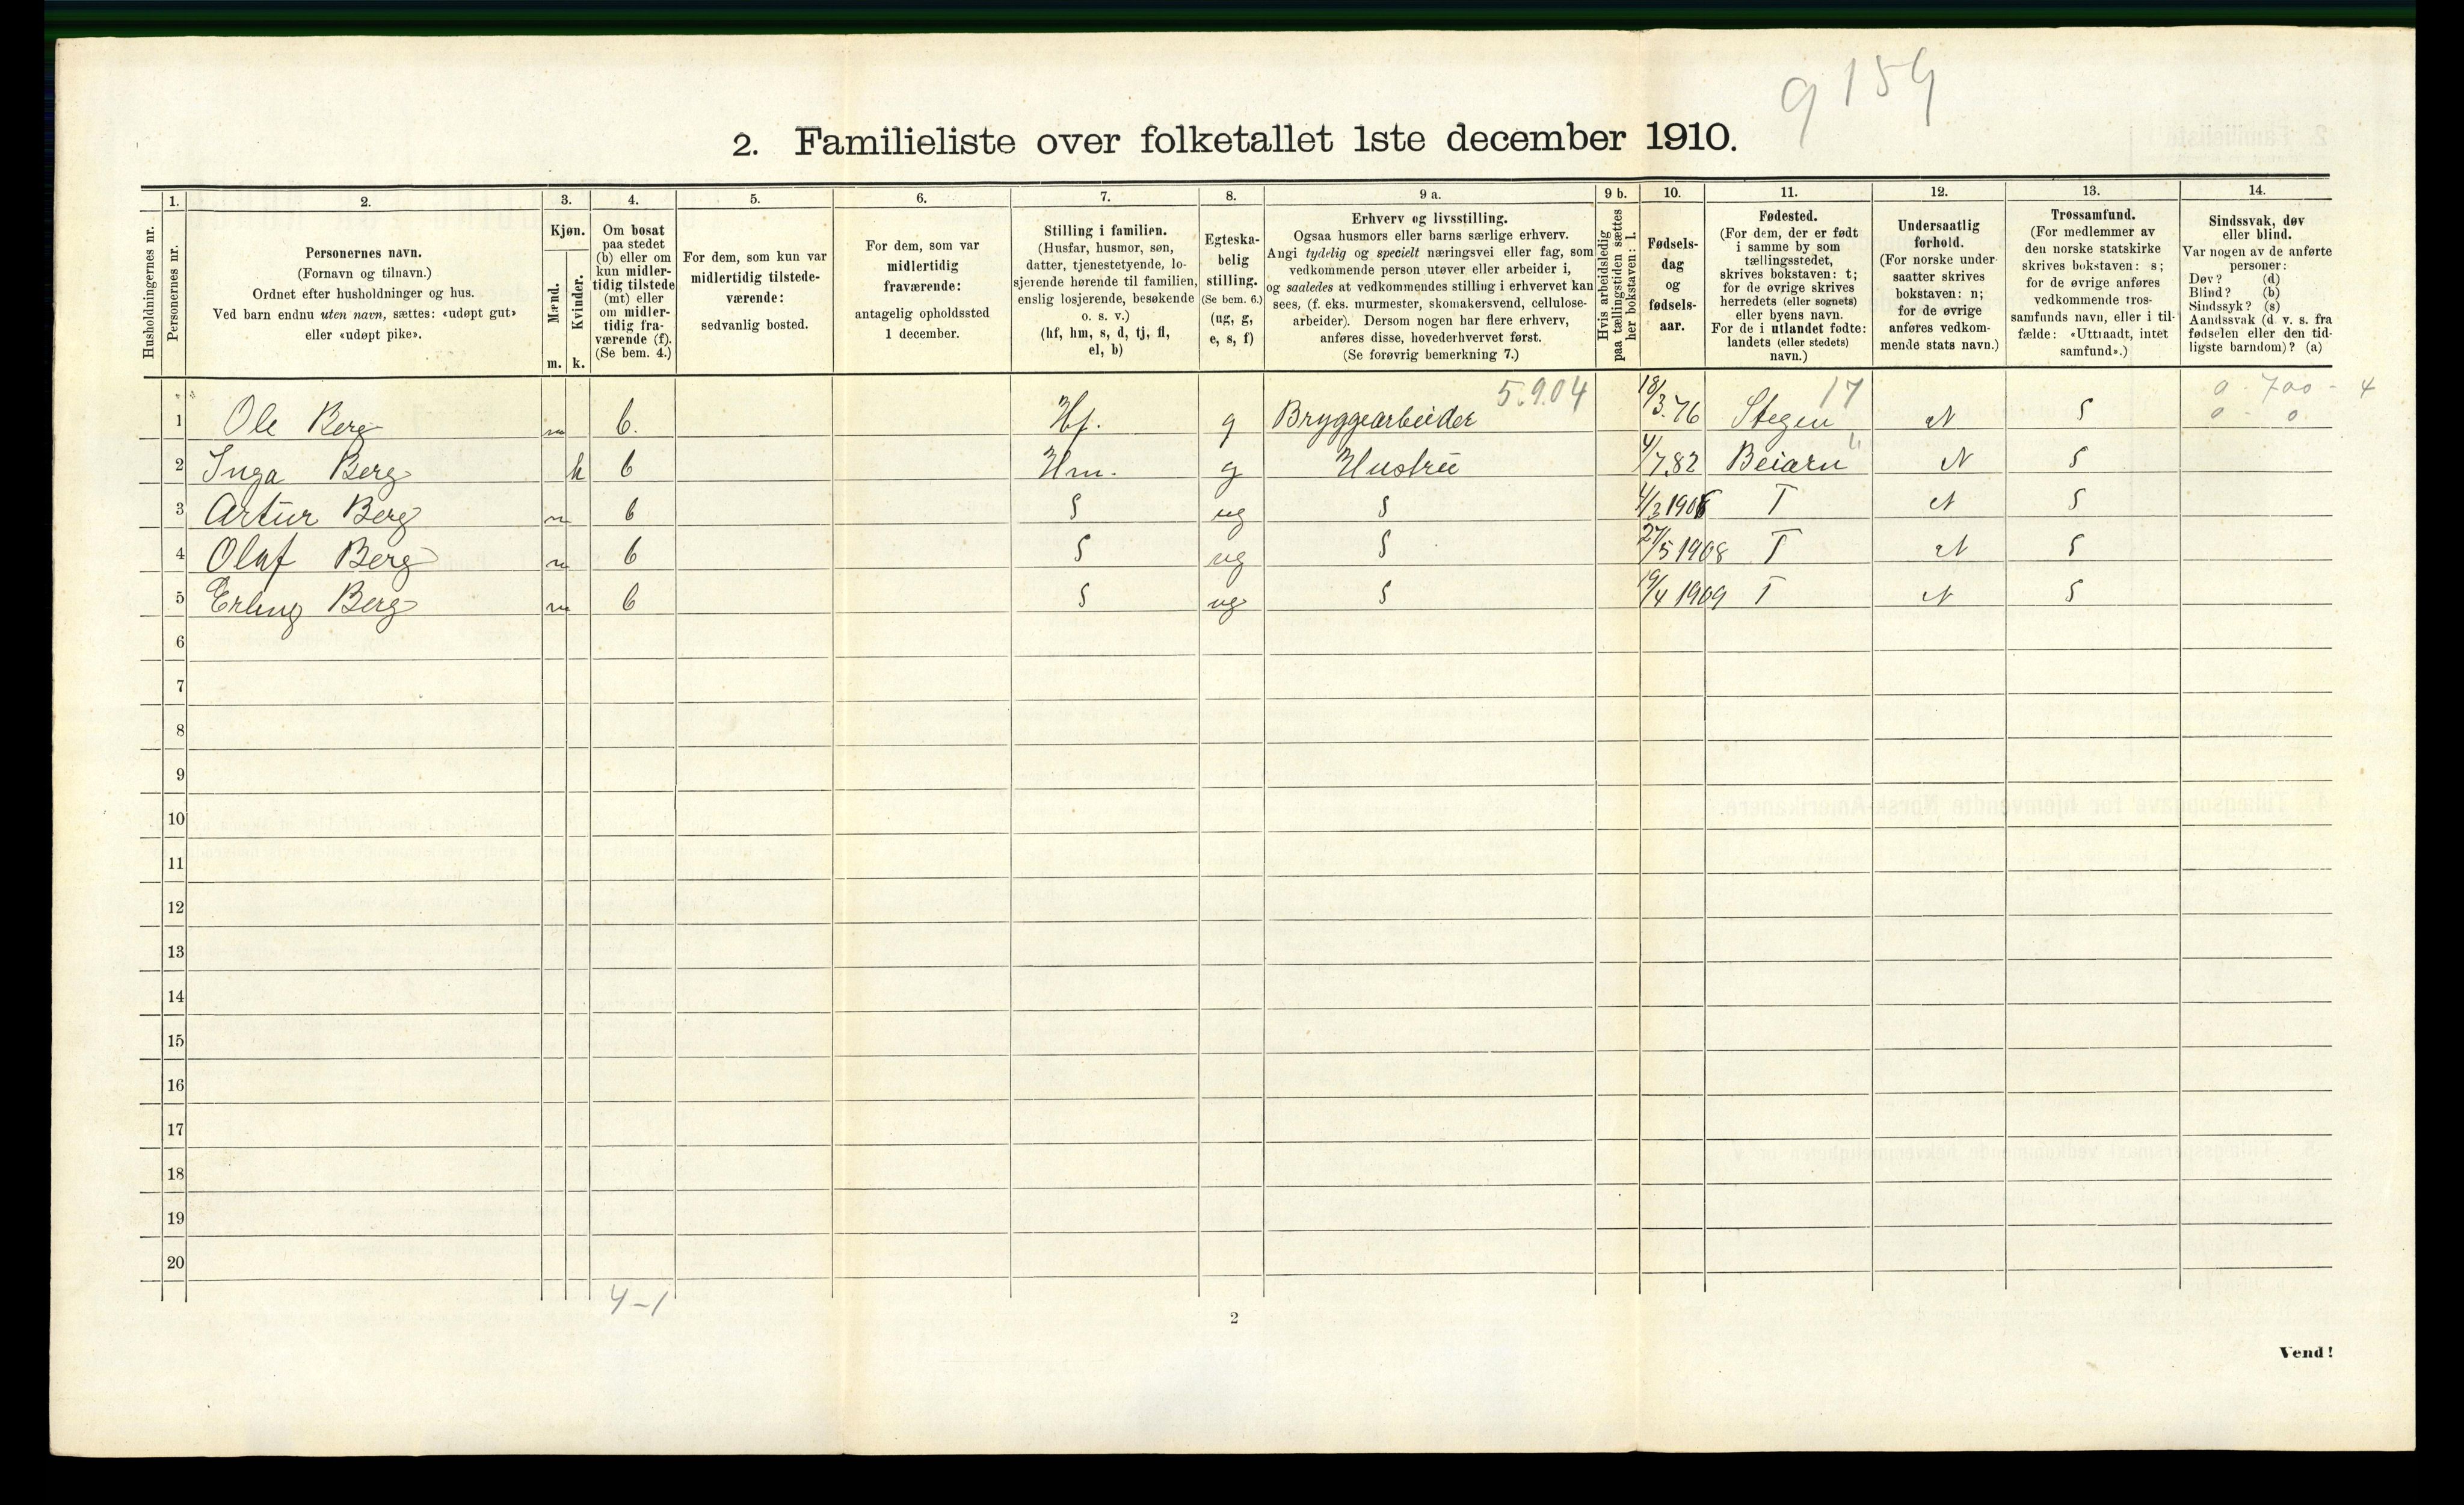 9159
2. Familieliste over folketallet 1ste december 1910.
Husholdningernes nr.
1.
Personernes nr.
2.
Personernes navn.
(Fornavn og tilnavn.)
Ordnet efter husholdninger og hus.
Ved barn endnu uten navn, sættes: «udøpt gut»
eller «udøpt pike».
3.
Kjøn.
Mænd.
m.
Kvinder.
k.
4.
Om bosat
paa stedet
(b) eller om
kun midler-
tidig tilstede
(mt) eller
om midler-
tidig fra-
værende (f).
(Se bem. 4.)
5.
For dem, som kun var
midlertidig tilstede-
værende:
sedvanlig bosted.
6.
For dem, som var
midlertidig
fraværende:
antagelig opholdssted
1 december.
7.
Stilling i familien.
(Husfar, husmor, søn,
datter, tjenestetyende, lo-
sjerende hørende til familien,
enslig losjerende, besøkende
o. s. v.)
(hf, hm, s, d, tj, fl,
el, b)
8.
Egteska-
belig
stilling.
(Se bem. 6.)
(ug, g,
e, s, f)
9 a.
Erhverv og livsstilling.
Ogsaa husmors eller barns særlige erhverv.
Angi tydelig og specielt næringsvei eller fag, som
vedkommende person utøver eller arbeider i,
og saaledes at vedkommendes stilling i erhvervet kan
sees, (f. eks. murmester, skomakersvend, cellulose-
arbeider). Dersom nogen har flere erhverv,
anføres disse, hovederhvervet først.
(Se forøvrig bemerkning 7.)
9 b.
Hvis arbeidsledig
paa tællingstiden sættes
her bokstaven: l.
10.
Fødsels-
dag
og
fødsels-
aar.
11.
Fødested.
(For dem, der er født
i samme by som
tællingsstedet,
skrives bokstaven: t;
for de øvrige skrives
herredets (eller sognets)
eller byens navn.
For de i utlandet fødte:
landets (eller stedets)
navn.)
12.
Undersaatlig
forhold.
(For norske under-
saatter skrives
bokstaven: n;
for de øvrige
anføres vedkom-
mende stats navn.)
13.
Trossamfund.
(For medlemmer av
den norske statskirke
skrives bokstaven: s;
for de øvrige anføres
vedkommende tros-
samfunds navn, eller i til-
fælde: «Uttraadt, intet
samfund».)
14.
Sindssvak, døv
eller blind.
Var nogen av de anførte
personer:
Døv? (d)
Blind? (b)
Sindssyk? (s)
Aandssvak (d. v. s. fra
fødselen eller den tid-
ligste barndom)? (a)
5.9.04 17 0 - 700 - 4
0 - 0
1 Ole Berg m b. Hf. g Bryggearbeider 18/3.76 Stegen N S
2 Inga Berg k b Hm. g Hustru 4/7.82 Beiarn N S
3 Artur Berg m b S ug S 4/3 190 T N S
4 Olaf Berg m b S ug S 27/5 1908 T N S
5 Erling Berg m b S ug S 19/4 1909 T N S
6
7
8
9
10
11
12
13
14
15
16
17
18
19
20
4-1
2
Vend!